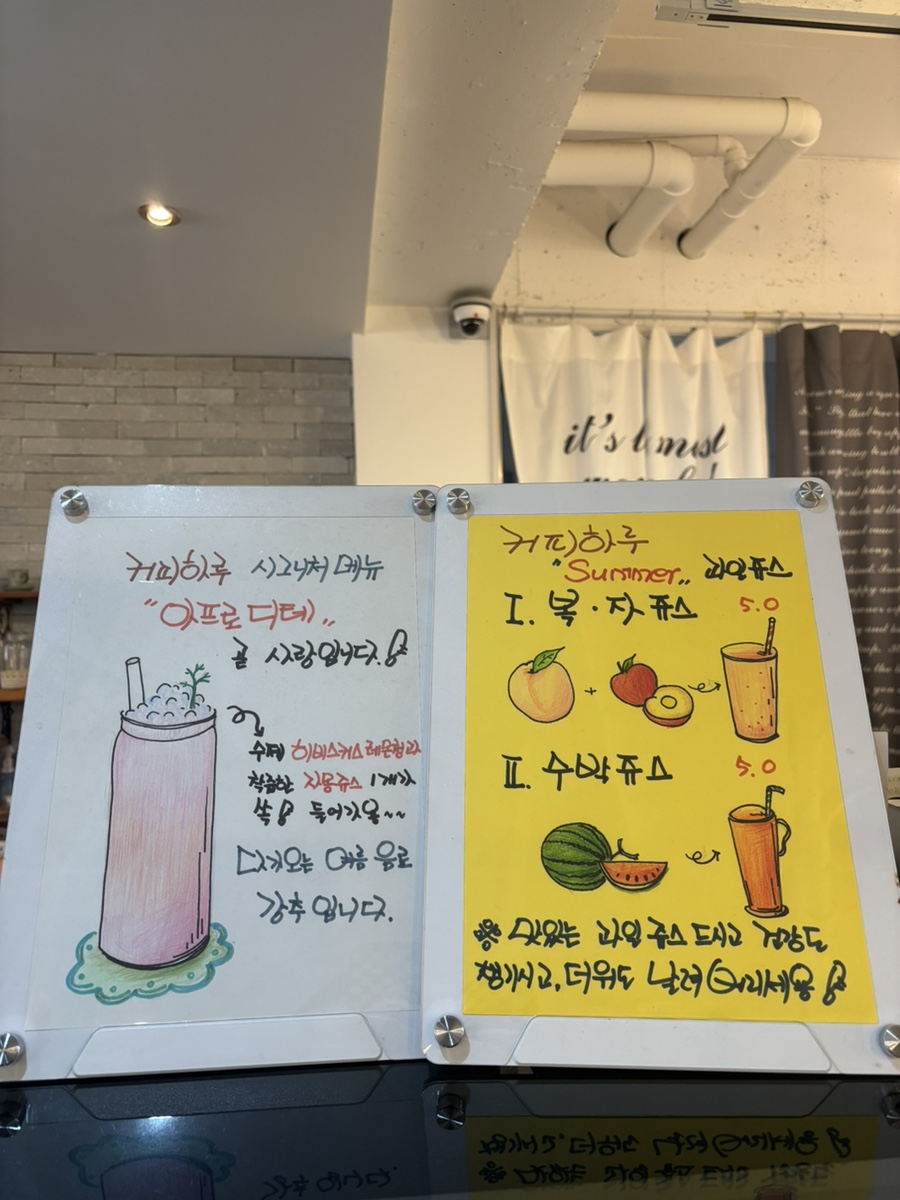 it's
커피하루 시그니처 메뉴
"아프로디테"
곧 사랑입니다.
수제 히비스커스 레몬청과
착즙한 자몽쥬스 1개가
쏙 들어가욤~~
다가오는 여름 음료
강추입니다.
커피하루
"Summer" 과일쥬스
I. 복·자쥬스 5.0
+
II. 수박쥬스 5.0
※ 맛있는 과일쥬스 드시고 건강도
챙기시고, 더위도 날려버리세용